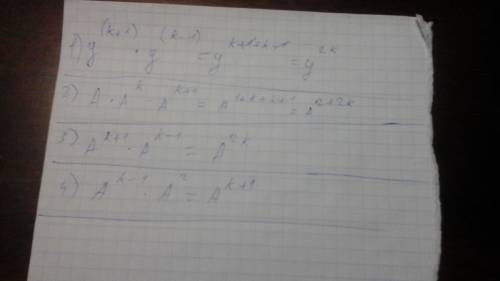 1) y^(k+1) · y^(k-1) = y^k+1+k-1 = y^2k
2) A · A^k A^k+1 = A^1+k+k+1 = A^2+2k
3) A^k+1 · A^k-1 = A^2k
4) A^k-1 · A^2 = A^k+1